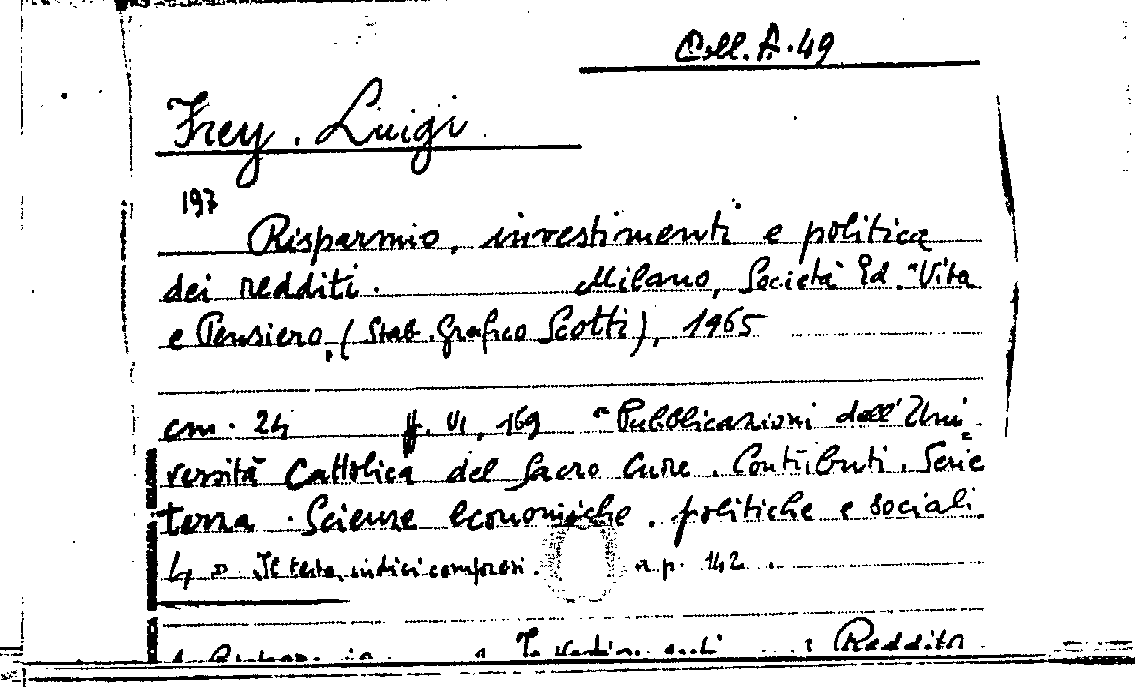 Coll. A. 49
Frey. Luigi
197
Risparmio, investimenti e politica
dei redditi. Milano, Società Ed. "Vita
e Pensiero, (Stab. Grafico Scotti), 1965
cm. 24 pp. VI, 169 "Pubblicazioni dell'Uni
versità Cattolica del Sacro Cuore. Contributi. Serie
terza. Scienze economiche. politiche e sociali
4" Il testo, indici compresi. a p. 142.
Reddito